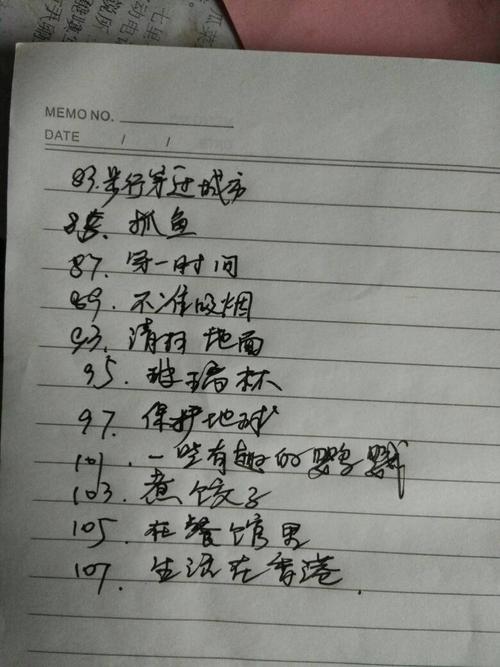 MEMO NO.
DATE / /
83.步行穿过城市
85. 抓鱼
87. 另一时间
89. 不准吸烟
93. 清扫 地面
95. 玻璃杯
97. 保护地球
101. 一些有趣的
103. 煮饺子
105. 在餐馆里
107. 生活在香港.